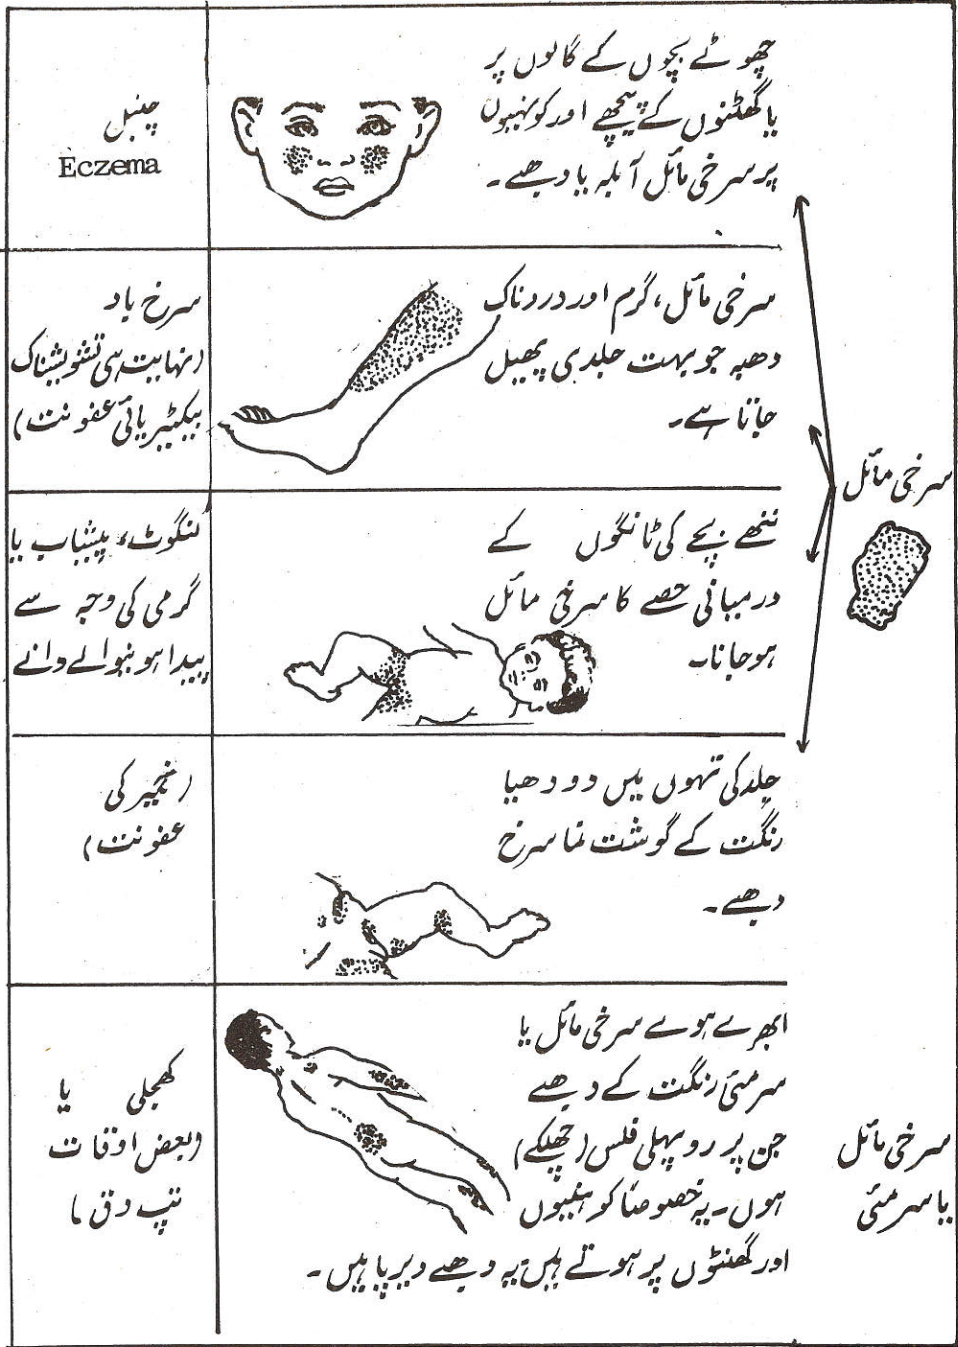 سرخی مائل
چھوٹے بچوں کے گالوں پر
یا گھٹنوں کے پیچھے اور کوہنیوں
پر سرخی مائل آبلہ یا دھبے۔
چنبل
Eczema
سرخی مائل، گرم اور دردناک
دھبہ جو بہت جلدی پھیل
جاتا ہے۔
سرخ باد
(نہایت ہی تشویشناک
بیکٹیریائی عفونت)
ننھے بچے کی ٹانگوں کے
درمیانی حصے کا سرخی مائل
ہو جانا۔
لنگوٹ، پیشاب یا
گرمی کی وجہ سے
پیدا ہونیوالے دانے
جِلد کی تہوں میں دودھیا
رنگت کے گوشت نما سرخ
دھبے۔
(خمیر کی
عفونت)
سرخی مائل
یا سرمئی
ابھرے ہوے سرخی مائل یا
سرمئی رنگت کے دھبے
جن پر روپہلی فلس (چھلکے)
ہوں۔ یہ خصوصاً کوہنیوں
اور گھٹنوں پر ہوتے ہیں یہ دھبے دیرپا ہیں۔
کھجلی یا
(بعض اوقات
تپ دق)